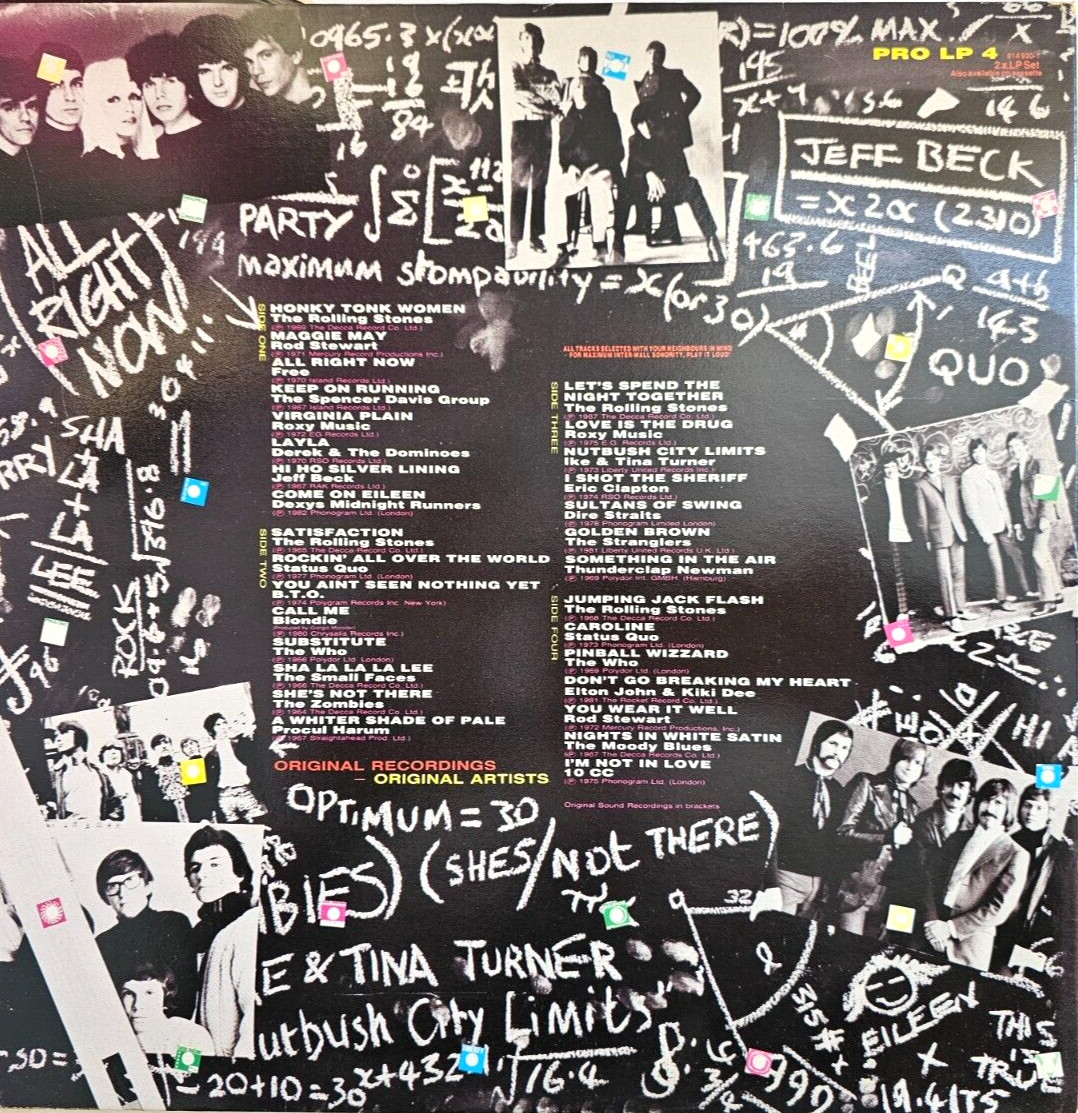 PRO LP 4
2 x LP Set
Also available on cassette
0965.3 x(
)=100% MAX./
JEFF BECK
= x 2α (2.310)
PARTY
maximum
ALL
RIGHT
NOW
194
463.6
19
143
QUO
HONKY TONK WOMEN
The Rolling Stones
(P) 1969 The Decca Record Co. Ltd.)
MAGGIE MAY
Rod Stewart
(P) 1971 Mercury Record Productions Inc.)
ALL RIGHT NOW
Free
(P) 1970 Island Records Ltd.)
KEEP ON RUNNING
The Spencer Davis Group
(P) 1967 Island Records Ltd.)
VIRGINIA PLAIN
Roxy Music
(P) 1972 E.G. Records Ltd.)
LAYLA
Derek & The Dominoes
(P) 1970 RSO Records Ltd.)
HI HO SILVER LINING
Jeff Beck
(P) 1967 RAK Records Ltd.)
COME ON EILEEN
Dexys Midnight Runners
(P) 1982 Phonogram Ltd. (London)
SIDE ONE
SATISFACTION
The Rolling Stones
(P) 1965 The Decca Record Co. Ltd.)
ROCKIN' ALL OVER THE WORLD
Status Quo
(P) 1977 Phonogram Ltd. (London)
YOU AINT SEEN NOTHING YET
B.T.O.
(P) 1974 Polygram Records Inc. New York)
CALL ME
Blondie
(P) 1980 Chrysalis Records Inc.)
SUBSTITUTE
The Who
(P) 1966 Polydor Ltd. London)
SHA LA LA LA LEE
The Small Faces
(P) 1966 The Decca Record Co. Ltd.)
SHE'S NOT THERE
The Zombies
(P) 1964 The Decca Record Co. Ltd.)
A WHITER SHADE OF PALE
Procul Harum
(P) 1967 Straightahead Prod. Ltd.)
SIDE TWO
ORIGINAL RECORDINGS
– ORIGINAL ARTISTS
ALL TRACKS SELECTED WITH YOUR NEIGHBOURS IN MIND
- FOR MAXIMUM INTER-WALL SONORITY, PLAY IT LOUD!
LET'S SPEND THE
NIGHT TOGETHER
The Rolling Stones
(P) 1967 The Decca Record Co. Ltd.)
LOVE IS THE DRUG
Roxy Music
(P) 1975 E.G. Records Ltd.)
NUTBUSH CITY LIMITS
Ike & Tina Turner
(P) 1973 Liberty United Records Inc.)
I SHOT THE SHERIFF
Eric Clapton
(P) 1974 RSO Records Ltd.)
SULTANS OF SWING
Dire Straits
(P) 1978 Phonogram Limited London)
GOLDEN BROWN
The Stranglers
(P) 1981 Liberty United Records U.K. Ltd.)
SOMETHING IN THE AIR
Thunderclap Newman
(P) 1969 Polydor Int. GMBH. (Hamburg)
SIDE THREE
JUMPING JACK FLASH
The Rolling Stones
(P) 1968 The Decca Record Co. Ltd.)
CAROLINE
Status Quo
(P) 1973 Phonogram Ltd. (London)
PINBALL WIZZARD
The Who
(P) 1969 Polydor Ltd. (London)
DON'T GO BREAKING MY HEART
Elton John & Kiki Dee
(P) 1981 The Rocket Record Co. Ltd.)
YOU WEAR IT WELL
Rod Stewart
(P) 1972 Mercury Record Productions, Inc.)
NIGHTS IN WHITE SATIN
The Moody Blues
(P) 1967 The Decca Records Co Ltd.)
I'M NOT IN LOVE
10 CC
(P) 1975 Phonogram Ltd. (London)
SIDE FOUR
Original Sound Recordings in brackets
SHA
LA + LA
LA
LEE
ROCKS
OPTIMUM = 30
BIES) (SHES/NOT THERE)
π
32
E & TINA TURNER
utbush City Limits
20+10=30
x+432
16.4
990
EILEEN
THIS
IS
TRUE